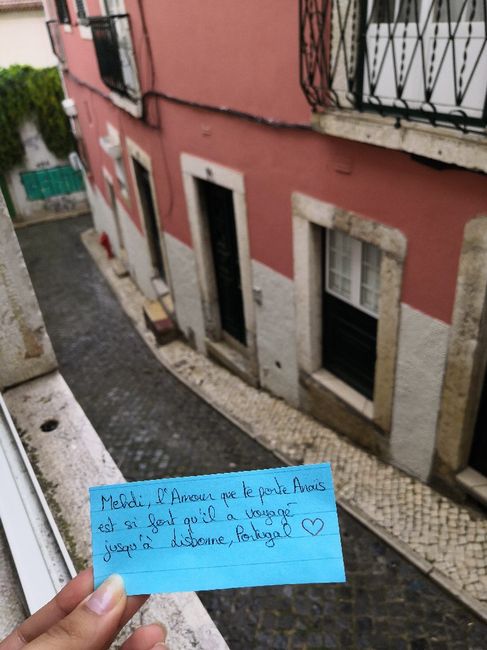 Mehdi, l'Amour que te porte Anais
est si fort qu'il a voyagé
jusqu'à Lisbonne, Portugal ♡